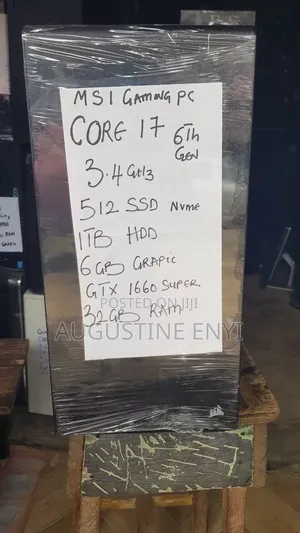 MSI GAMING PC
CORE I7 6Th
GEN
3.4GHz
512 SSD Nvme
1TB HDD
6GB GRAPIC
GTX 1660 SUPER
POSTED ON JIJI
32GB RAM
AUGUSTINE ENYI